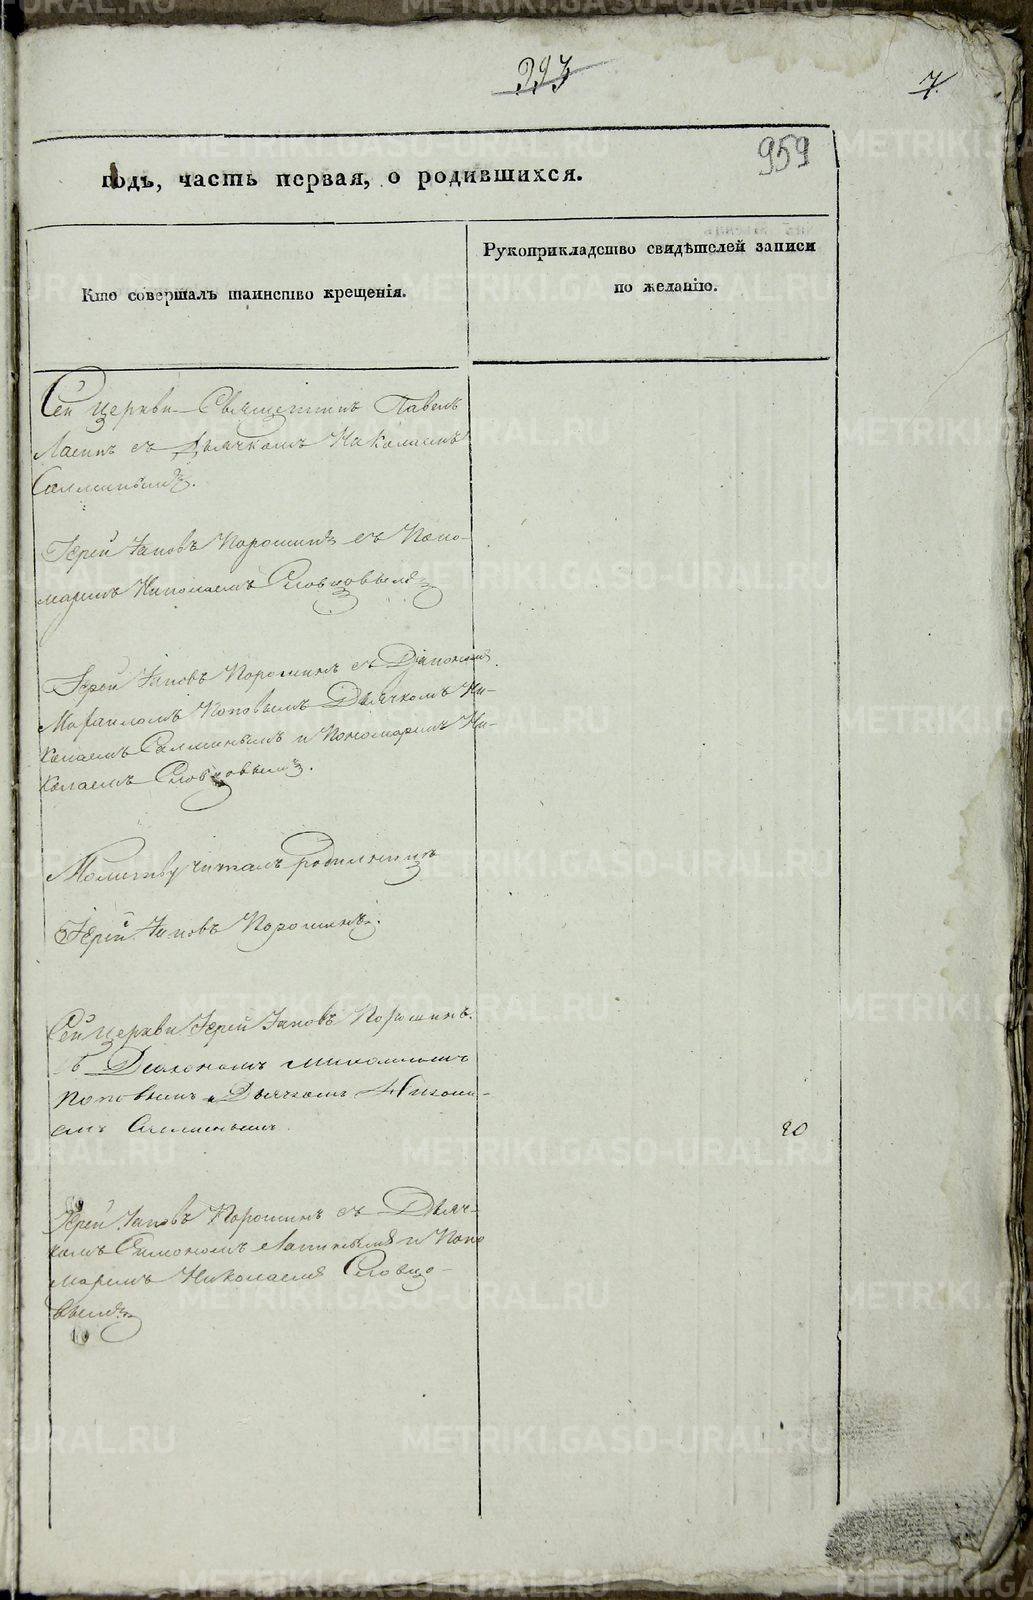 393
7.
959
годъ, часть первая, о родившихся.
Кто совершалъ таинство крещенія.
Рукоприкладство свидѣтелей записи
по желанію.
Сей церкви Священникъ Павелъ
съ Дьячкомъ Николаемъ
Салминымъ.
Іерей Іаковъ Порошинъ съ Поно-
маремъ Николаемъ Словцовымъ
Іерей Іаковъ Порошинъ съ Діакономъ
Михаиломъ Поповымъ Дьячкомъ Ни-
колаемъ Салминымъ и Пономаремъ Ни-
колаемъ Словцовымъ.
Молитву читалъ родильницѣ
Іерей Іаковъ Порошинъ.
Сей церкви Іерей Іаковъ Порошинъ
съ Діакономъ Михаиломъ
Поповымъ и Дьячкомъ Никола-
емъ Салминымъ
20
Іерей Іаковъ Порошинъ съ Дьяч-
комъ Симономъ Лапинымъ и Поно
маремъ Николаемъ Словцо-
вымъ
METRIKI.GASO-URAL.RU